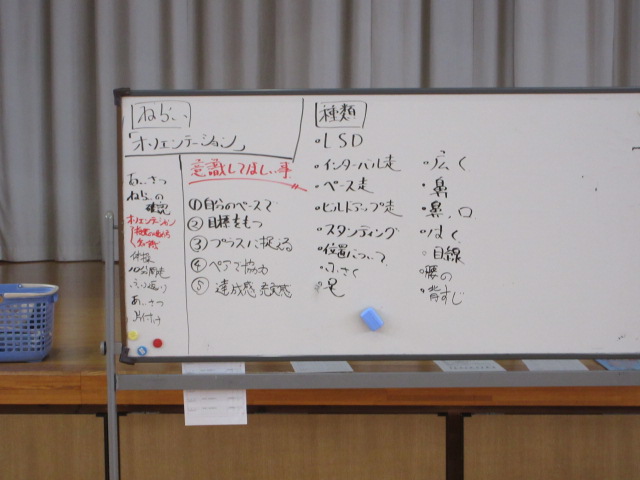 ねらい
「オリエンテーション」
あいさつ
ねらいの
確認
オリエンテーション
体操
10分間走
ふり返り
あいさつ
片付け
意識してほしい事
①自分のペースで
②目標をもつ
③プラスに捉える
④ペアで協力
⑤達成感 充実感
種類
・LSD
・インターバル走
・ペース走
・ビルドアップ走
・スタンディング
・位置について
・小さく
・足
・広く
・鼻
・鼻、口
・はく
・目線
・腰の
・背すじ